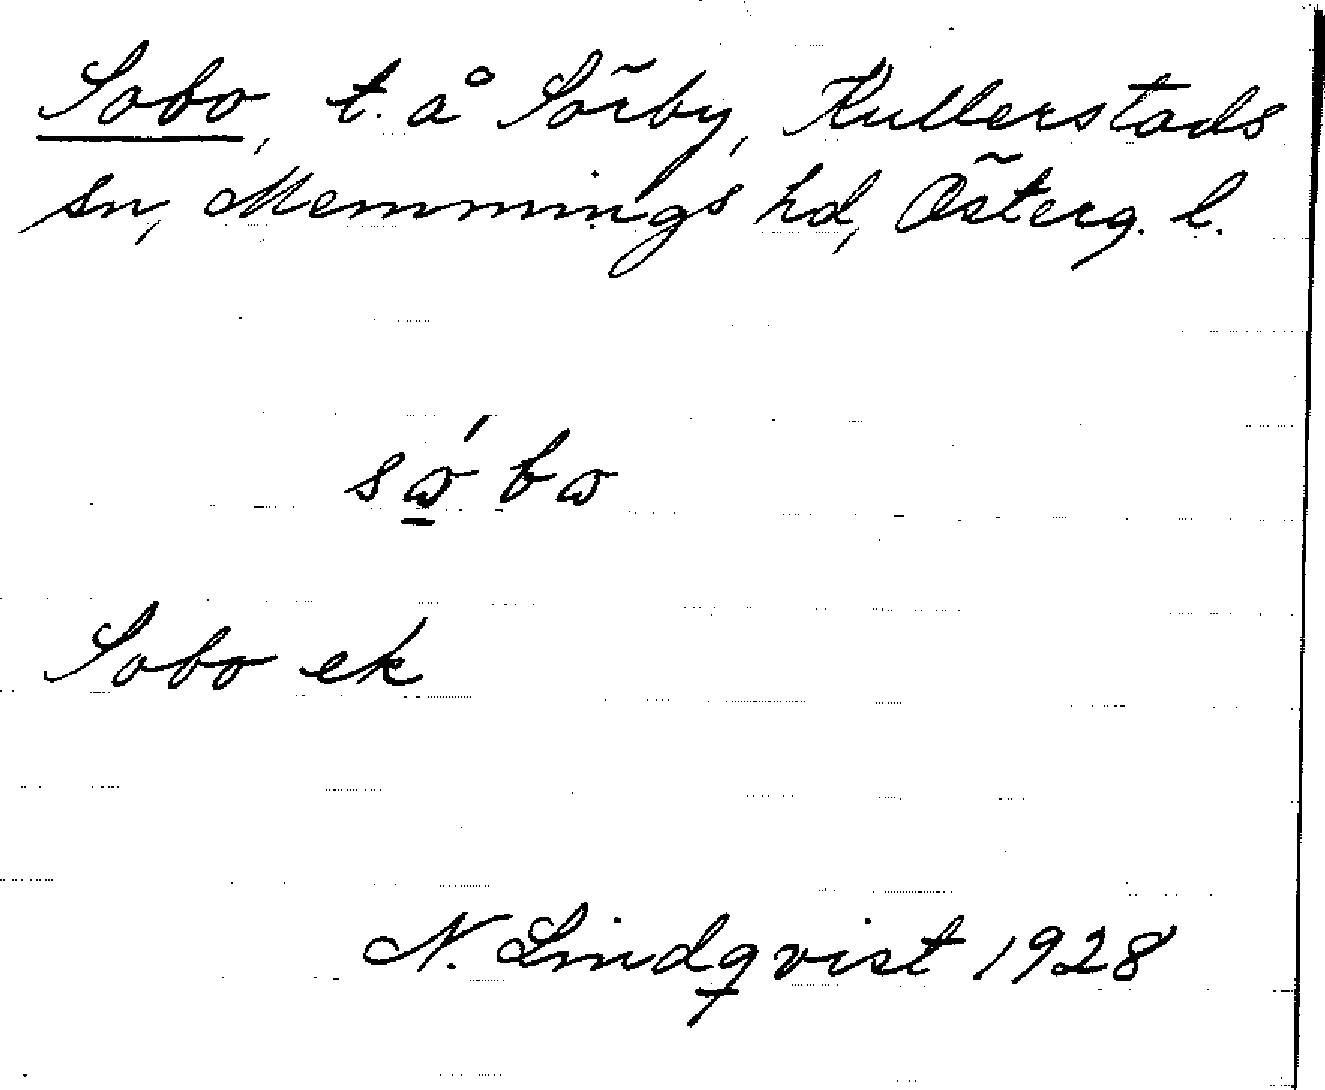 Sobo, t. å Sörby, Kullerstads
sn, Memmings hd, Österg. l.
sώ̲bω
Sobo ek
N. Lindqvist 1928